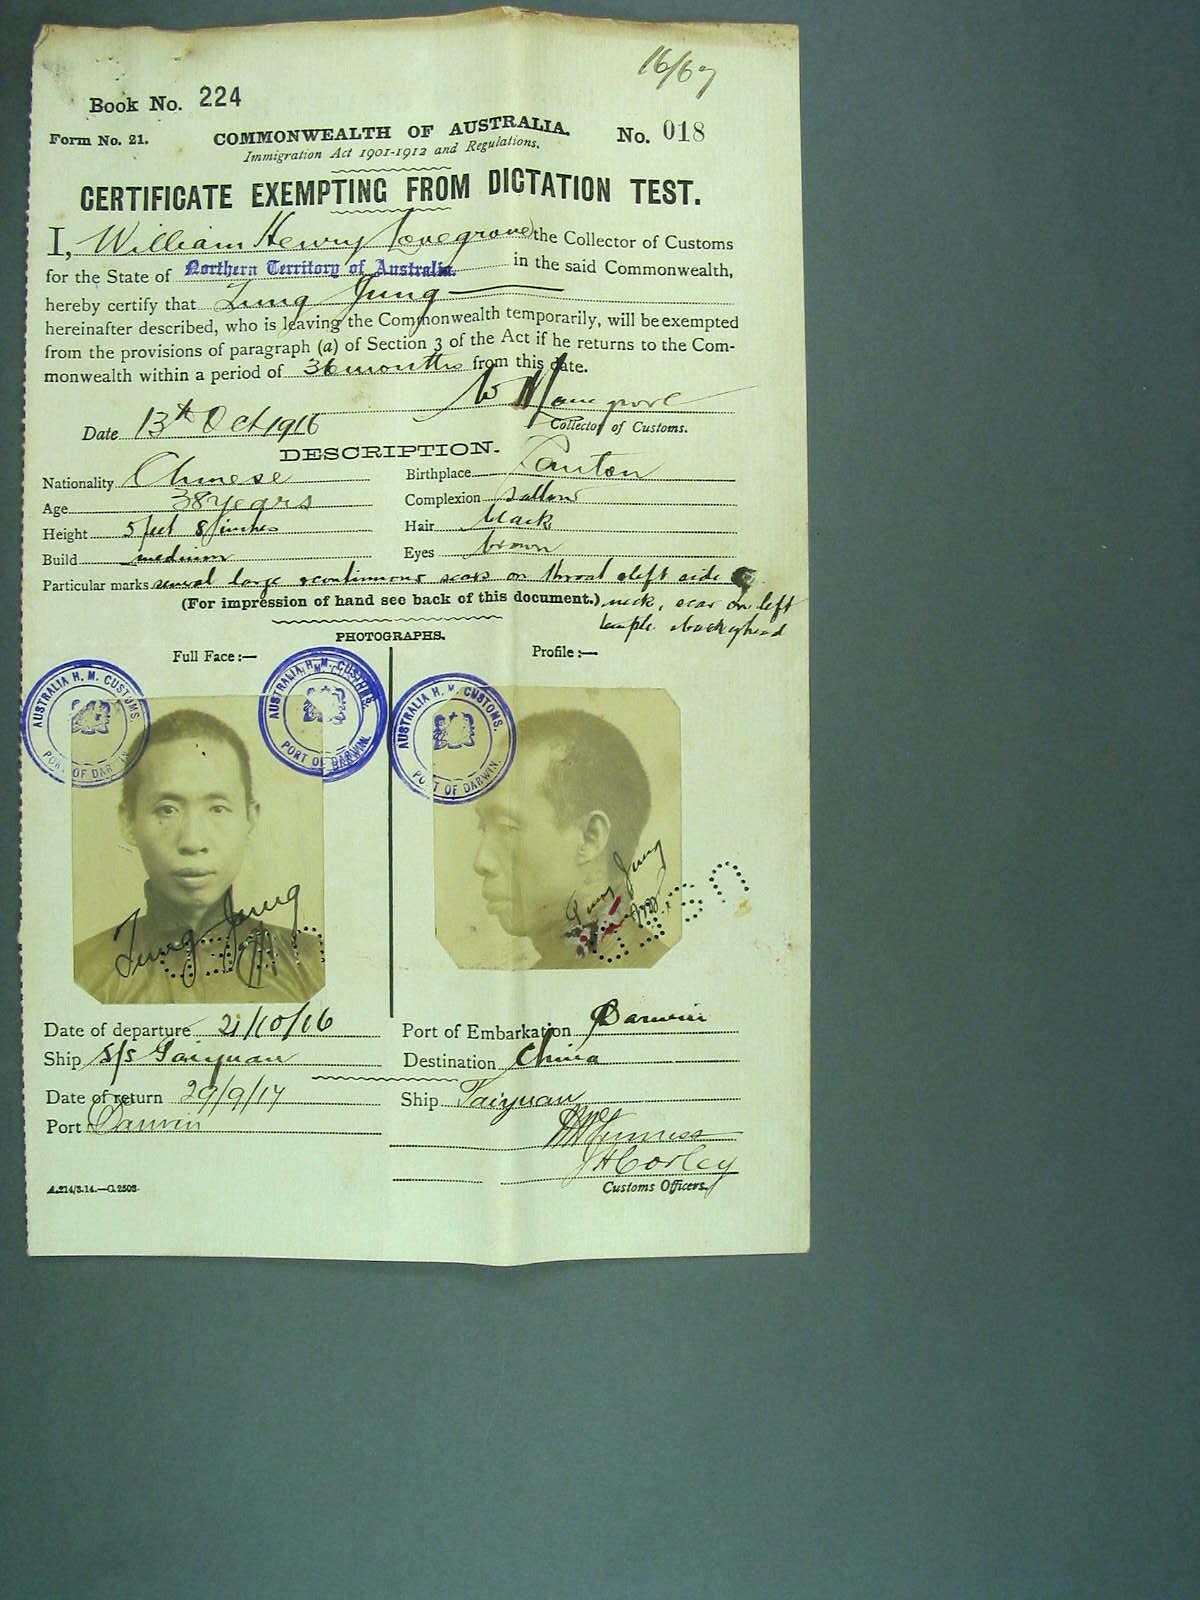 16/67
Book No. 224
Form No. 21. COMMONWEALTH OF AUSTRALIA. No. 018
Immigration Act 1901-1912 and Regulations.
CERTIFICATE EXEMPTING FROM DICTATION TEST.
I, William Henry Lovegrove the Collector of Customs
for the State of Northern Territory of Australia. in the said Commonwealth,
hereby certify that Tung Jung
hereinafter described, who is leaving the Commonwealth temporarily, will be exempted
from the provisions of paragraph (a) of Section 3 of the Act if he returns to the Com-
monwealth within a period of 36 months from this date.
W H Lovegrove
Date 13th Oct 1916 Collector of Customs.
DESCRIPTION.
Nationality Chinese Birthplace Canton
Age 38 years Complexion Sallow
Height 5 feet 8 inches Hair black
Build medium Eyes brown
Particular marks several large scars on throat left side
(For impression of hand see back of this document.) neck, scar on left
temple back head
PHOTOGRAPHS.
Full Face:— Profile:—
AUSTRALIA H. M. CUSTOMS. PORT OF DARWIN
AUSTRALIA H. M. CUSTOMS. PORT OF DARWIN.
AUSTRALIA H. M. CUSTOMS. PORT OF DARWIN.
Tung Jung
Tung Jung
Date of departure 21/10/16 Port of Embarkation Darwin
Ship S/S Taiyuan Destination China
Date of return 29/9/17 Ship Taiyuan
Port Darwin
J H Corley
A.214/3.14.—C.2503. Customs Officers.